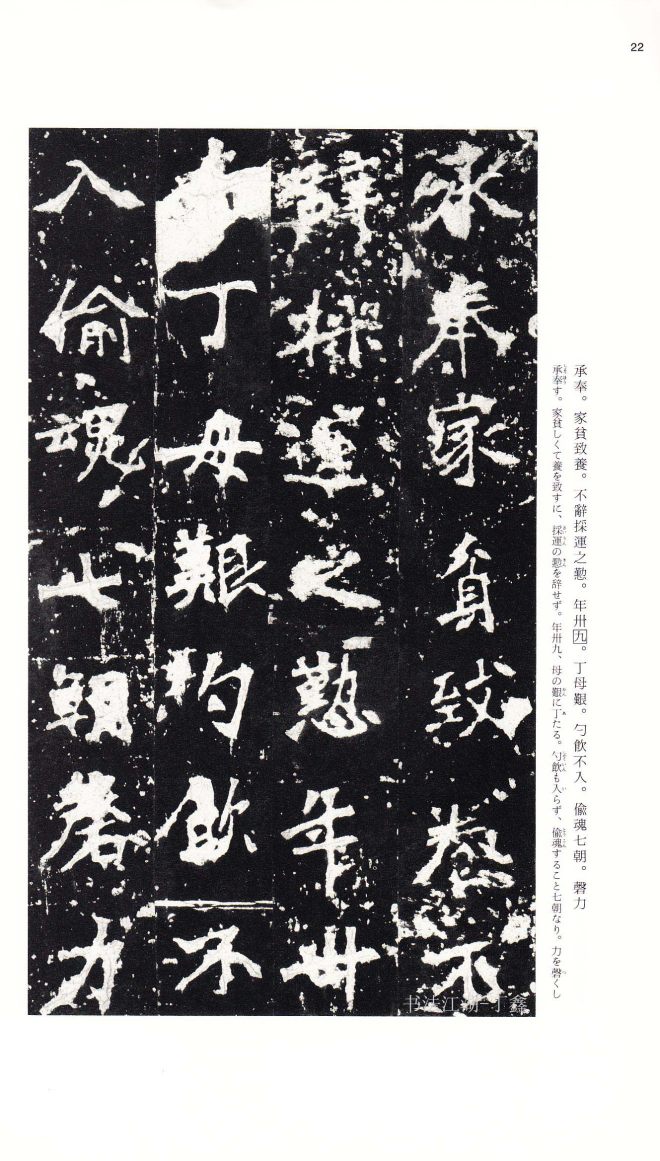 22
承奉家貧致養不
辭採運之懃年卌
九丁母艱杓飲不
入偷魂七朝磬力
承奉。家貧致養。不辭採運之懃。年卌九。丁母艱。勺飲不入。偸魂七朝。磬力
承奉す。家貧しくて養を致すに、採運の懃を辞せず。年卌九、母の艱に丁たる。勺飲も入らず、偸魂すること七朝なり。力を磬くし
书法江湖-丁鑫